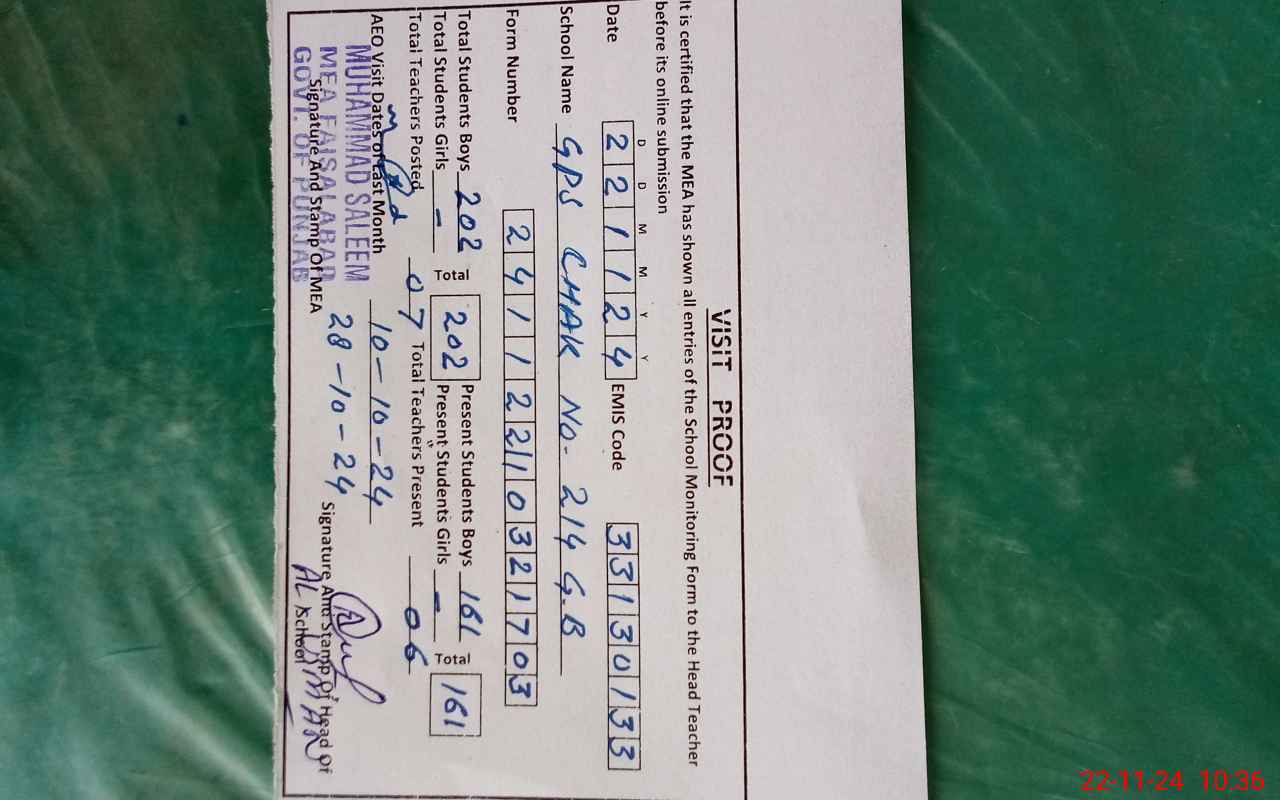 VISIT PROOF
It is certified that the MEA has shown all entries of the School Monitoring Form to the Head Teacher
before its online submission
D D M M Y Y
Date 2 2 1 1 2 4 EMIS Code 3 3 1 3 0 1 3 3
School Name GPS CHAK NO. 214 G.B
Form Number 2 4 1 1 2 2 1 0 3 2 1 7 0 3
Total Students Boys 202 Total 202 Present Students Boys 161 Total 161
Total Students Girls - Present Students Girls -
Total Teachers Posted 07 Total Teachers Present 06
AEO Visit Dates of Last Month 10-10-24
28-10-24
MUHAMMAD SALEEM
MEA FAISALABAD
GOVT. OF PUNJAB
Signature And Stamp Of MEA
Signature And Stamp Of Head Of
School
22-11-24 10:36